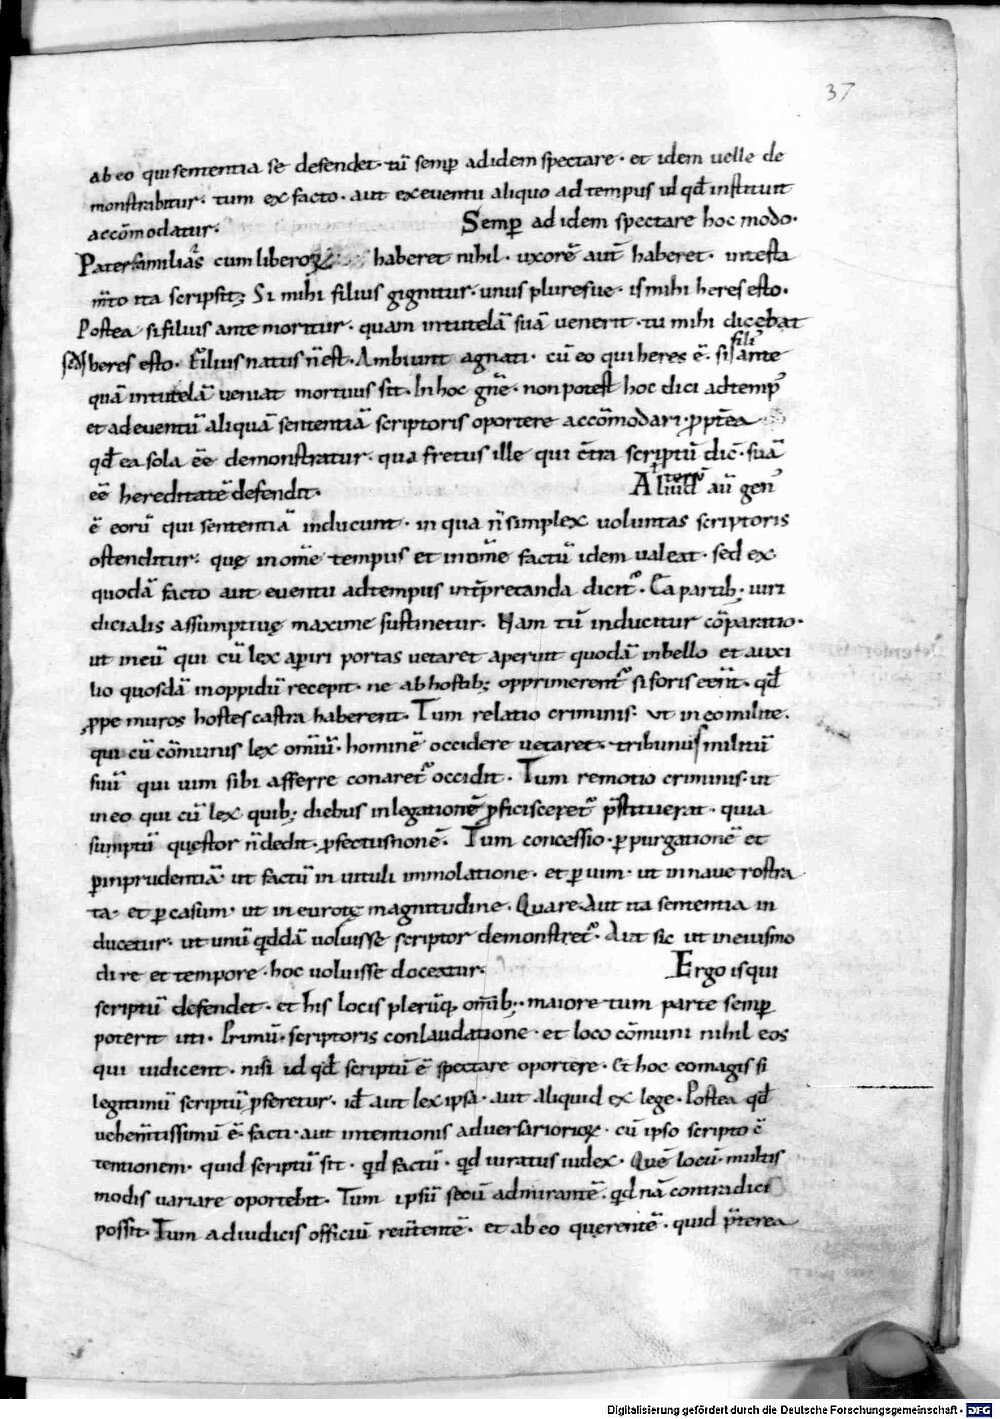 37
ab eo qui sententia se defendet · tū semꝑ ad idem spectare · et idem uelle de
monstrabitur · tum ex facto · aut ex euentu aliquo ad tempus id qđ instituit
accōmodatur ·            Semꝑ ad idem spectare hoc modo ·
Paterfamilias cum liberoꝝ haberet nihil · uxorē aut̄ haberet · in testa
m̄to ita scripsit; Si mihi filius gignitur · unus pluresue · is mihi heres esto ·
Postea si filius ante moritur · quam in tutelā suā uenerit · tu mihi dicebat
secds heres esto · Filius natus n̄ est · Ambiunt agnati · cū eo qui heres ē · si fili' ante
quā in tutelā ueniat mortuus sit · In hoc gn̄e · non potest hoc dici ad temp'
et ad euentū aliquā sententiā scriptoris oportere accōmodari · ꝓpt̄ea
qđ ea sola eē demonstratur · qua fretus ille qui c̄tra scriptū dic̄ · suā
eē hereditatē defendit ·            Aliud aū gen'
ē eorū qui sententiā inducunt · in qua n̄ simplex uoluntas scriptoris
ostenditur · quę in om̄e tempus et in om̄e factū idem ualeat · sed ex
quodā facto aut euentu ad tempus int̄pretanda dicit᷑ · Ea partib; iuri
dicialis assumptiuę maxime sustinetur · Nam tū inducitur cōparatio ·
ut in eū qui cū lex aperiri portas uetaret aperuit quodā in bello et auxi
lio quosdā in oppidū recepit · ne ab hostib; opprimerent᷑ si foris eēnt · qđ
ꝓpe muros hostes castra haberent · Tum relatio criminis · ut in eo milite ·
qui cū cōmunis lex omiū · hominē occidere uetaret · tribunū militū
suū qui uim sibi afferre conaret᷑ occidit · Tum remotio criminis · ut
in eo qui cū lex quib; diebus in legationē ꝓficisceret᷑ p̄stituerat · quia
sumptū questor n̄ dedit · ꝓfectus non ē · Tum concessio · ꝑ purgationē et
ꝑ inprudentiā ut factū in uituli immolatione · et ꝑ uim · ut in naue rostra
ta · et ꝑ casum · ut in eurotę magnitudine · Quare Aut ita sententia in
ducetur · ut unū qđdā uoluisse scriptor demonstret᷑ · Aut sic ut in eiusmo
di re et tempore · hoc uoluisse doceatur ·            Ergo is qui
scriptū defendet · et his locis plerūq; omib; · maiore tum parte semꝑ
poterit uti · Primū · scriptoris conlaudatione · et loco cōmuni nihil eos
qui iudicent · nisi id qđ scriptū ē spectare oportere · Et hoc eo magis si
legitimū scriptū ꝓferetur · id aut lex ipsa · aut aliquid ex lege · Postea qđ
uehem̄tissimū ē · facti · aut intentionis aduersarioꝝ · cū ipso scripto c̄
tentionem · quid scriptū sit · qđ factū · qđ iuratus iudex · Quē locū multis
modis uariare oportebit · Tum ipsū secū admirantē · qđ nā contra dici
possit · Tum ad iudicis officiū reūtentē · et ab eo querentē · quid p̄terea
Digitalisierung gefördert durch die Deutsche Forschungsgemeinschaft · DFG